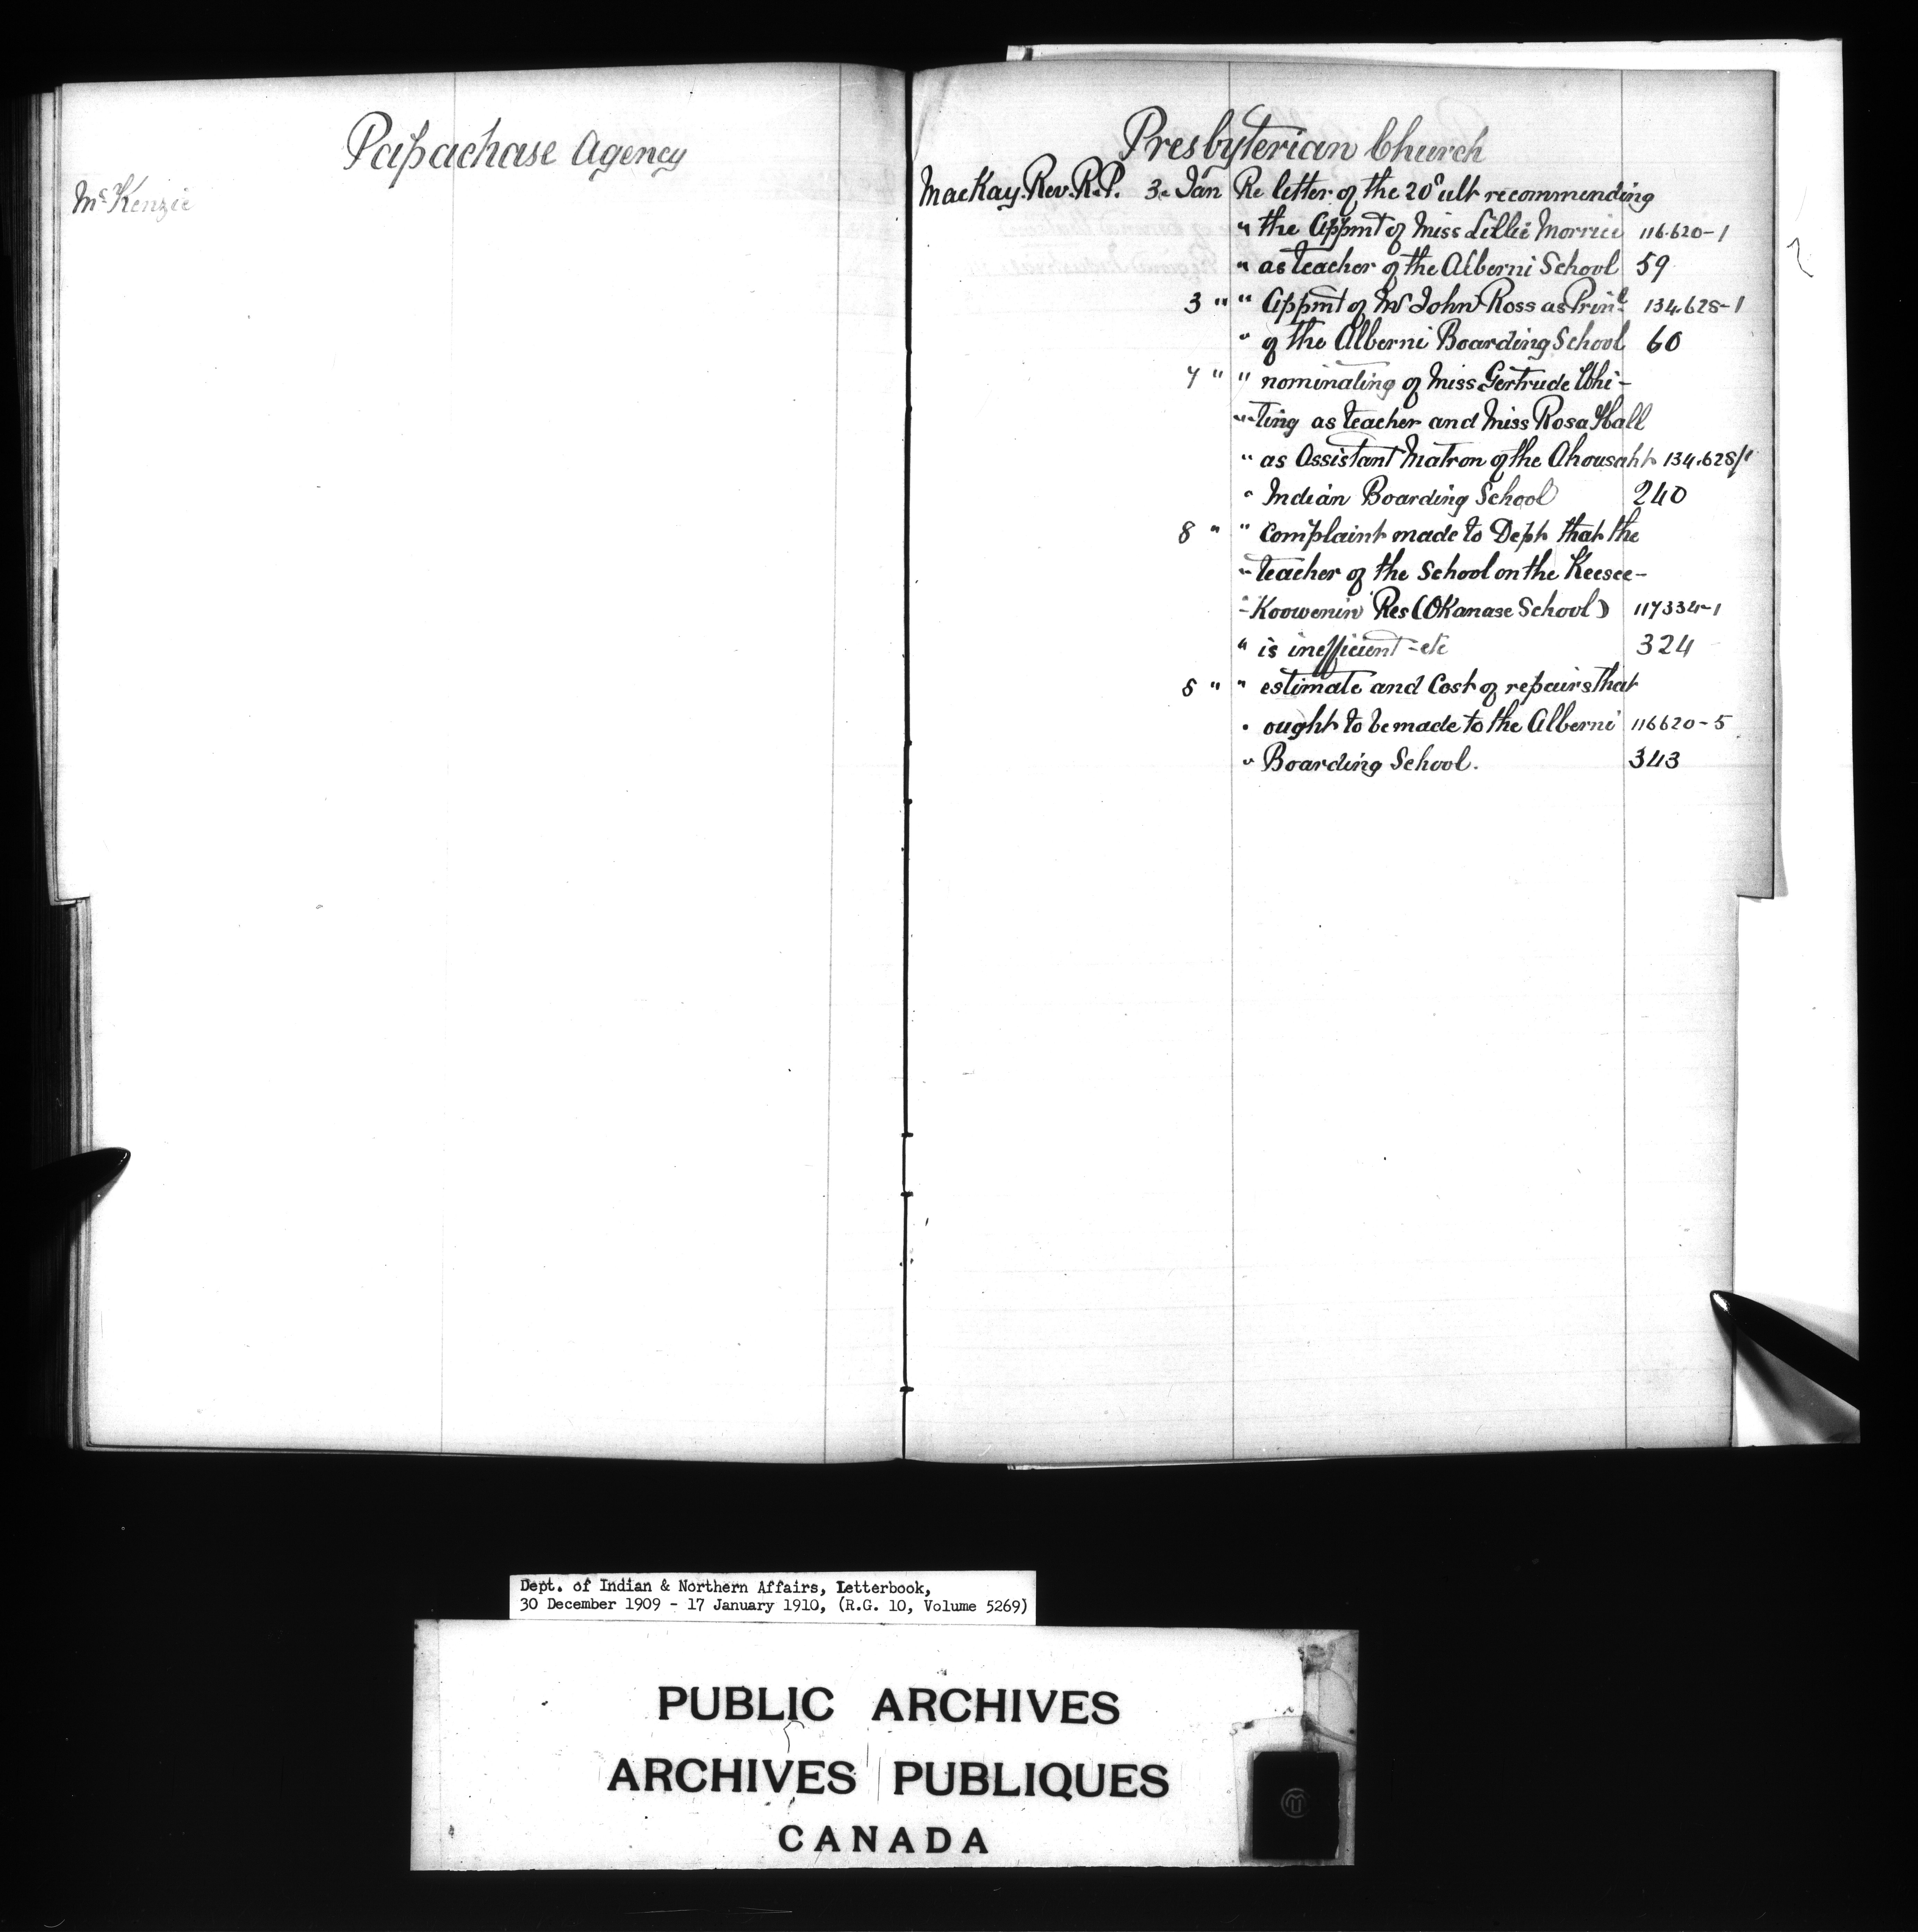 Papachase Agency
McKenzie
Presbyterian Church
MacKay. Rev. R.P. 3. Jan Re letter of the 20" ult recommending
" the Appmt of Miss Lillie Morrice 116.620-1
" as teacher of the Alberni School 59
3 " " Appmt of Mr John Ross as Prinl 134.628-1
" of the Alberni Boarding School 60
7 " " nominating of Miss Gertrude Whi-
" -ting as teacher and Miss Rosa Hall
" as Assistant Matron of the Ahousaht 134.628/1
" Indian Boarding School 240
8 " " Complaint made to Dept that the
" teacher of the School on the Keesee-
" -Koowenin Res (OKanase School) 117334-1
" is inefficient - etc 324
8 " " estimate and Cost of repairs that
" ought to be made to the Alberni 116620-5
" Boarding School. 343
Dept. of Indian & Northern Affairs, Letterbook,
30 December 1909 - 17 January 1910, (R.G. 10, Volume 5269)
PUBLIC ARCHIVES
ARCHIVES PUBLIQUES
CANADA